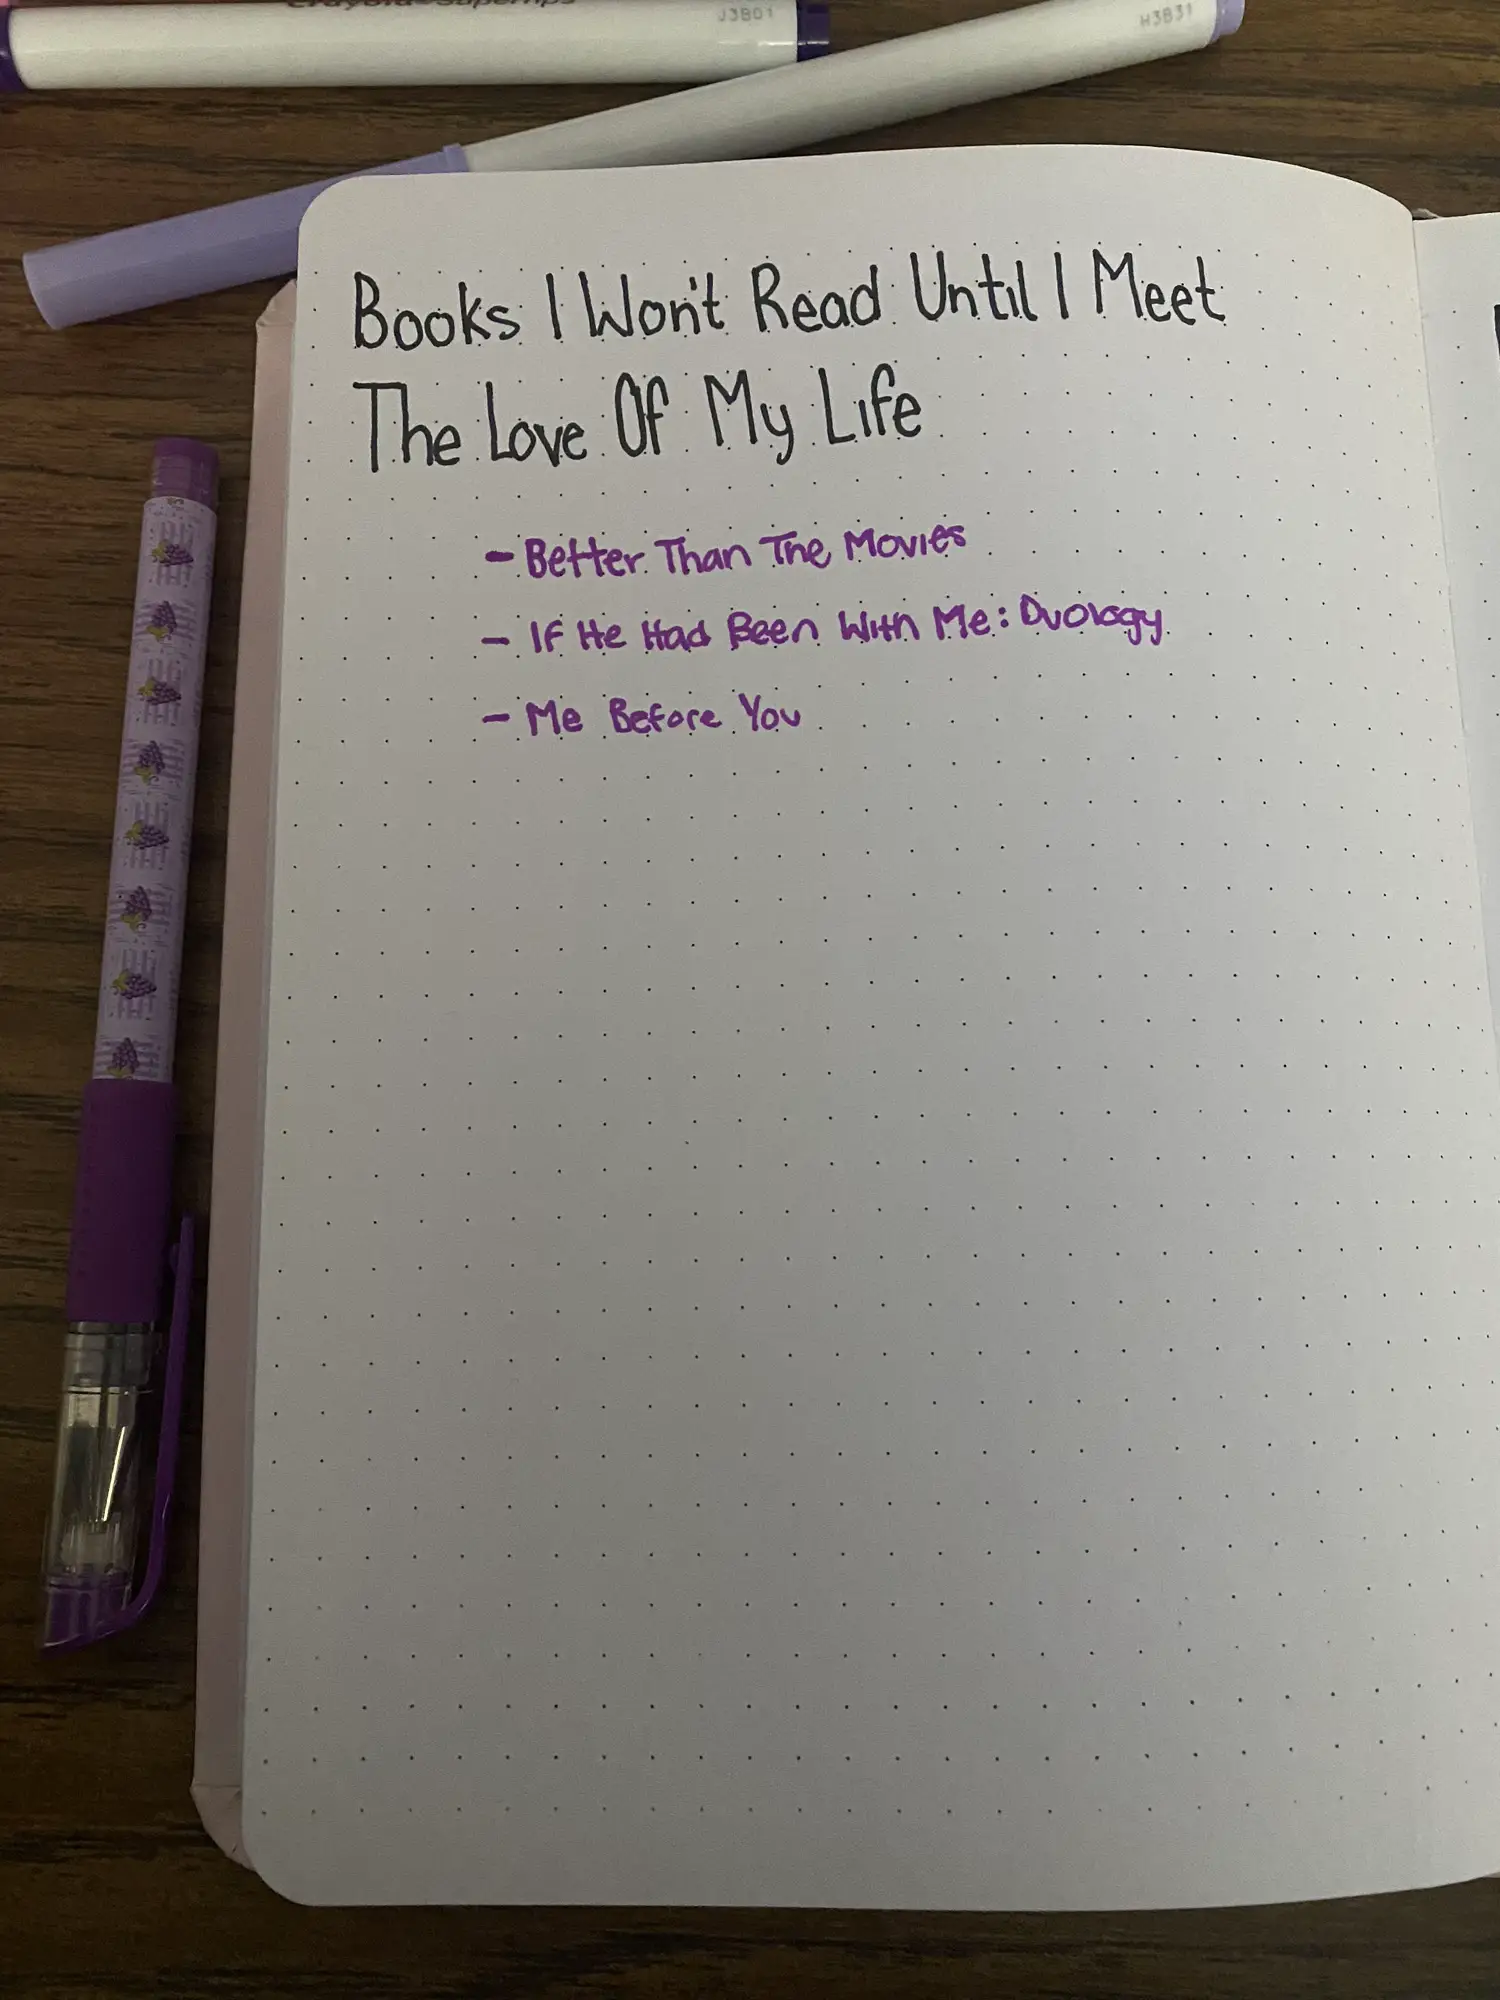 Crayola Supertips
J3B01
H3B31
Books I Won't Read Until I Meet
The Love Of My Life
- Better Than The Movies
- If He Had Been With Me: Duology
- Me Before You